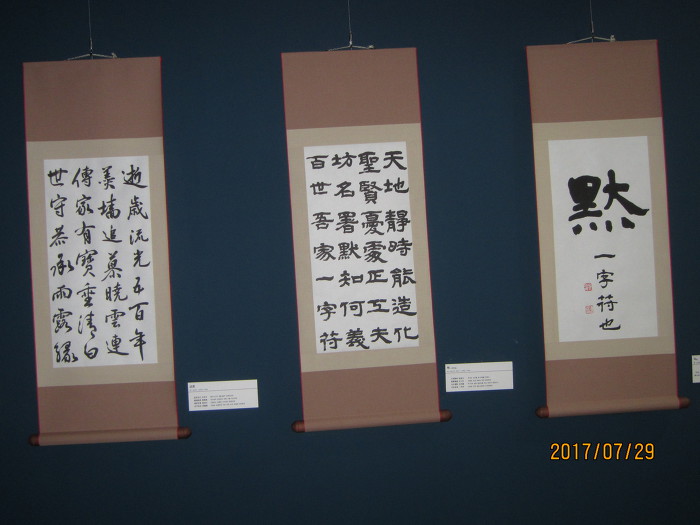 逝歲流光五百年
羹墻追慕曉雲連
傳家有寶垂清白
世守恭承雨露緣
天地靜時能造化
聖賢憂處正工夫
坊名署默知何義
百世吾家一字符
默
一字符也
2017/07/29